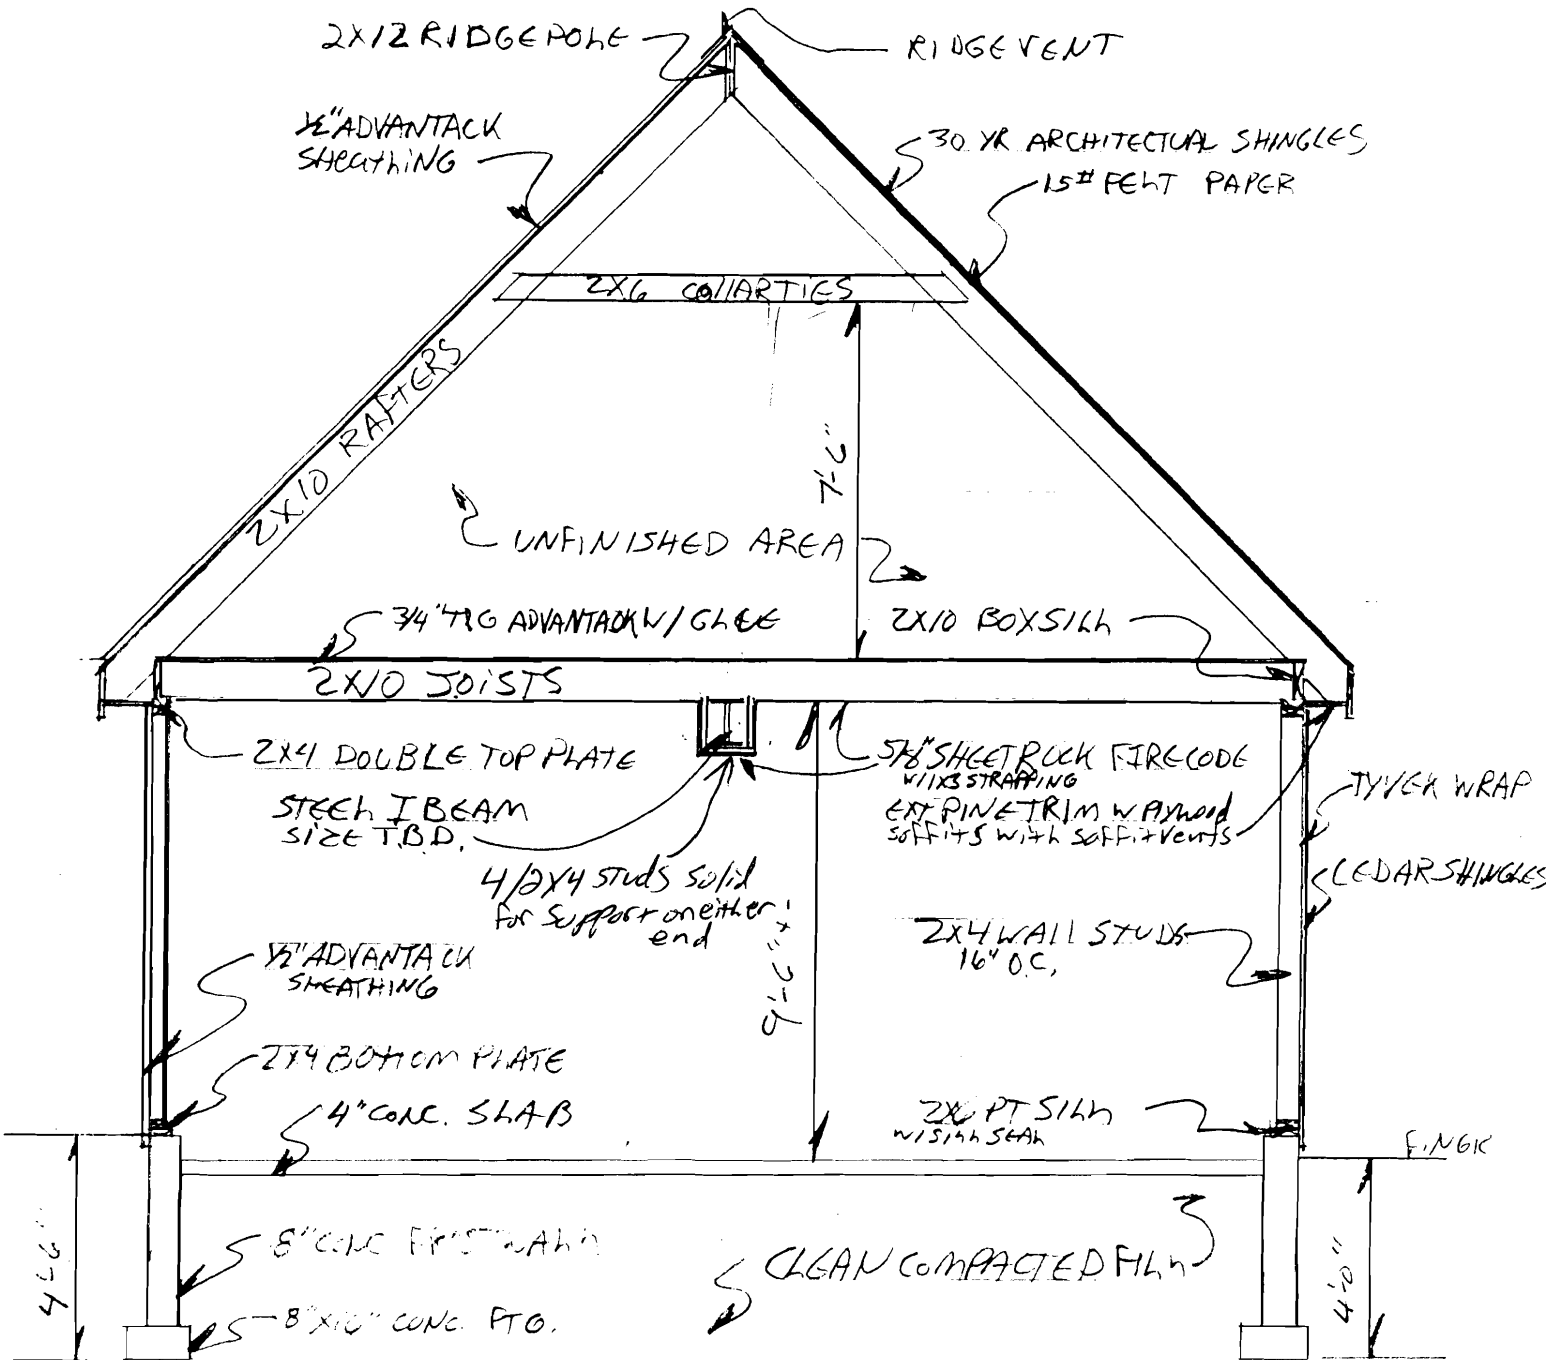 2X12 RIDGEPOLE
RIDGEVENT
1/2" ADVANTACK
SHEATHING
30 YR ARCHITECTUAL SHINGLES
15# FELT PAPER
2X6 COLLARTIES
2X10 RAFTERS
7'-6"
UNFINISHED AREA
3/4" T&G ADVANTACK W/ GLUE
2X10 BOXSILL
2X10 JOISTS
2X4 DOUBLE TOP PLATE
5/8" SHEETROCK FIRECODE
W/1X3 STRAPPING
STEEL I BEAM
SIZE T.B.D.
EXT PINE TRIM W. Plywood
soffits with soffitvents
TYVEK WRAP
4/2X4 STUDS Solid
for Support on either
end
CEDAR SHINGLES
2X4 WALL STUDS
16" O.C.
9'-6" ±
1/2" ADVANTACK
SHEATHING
2X4 BOTTOM PLATE
4" CONC. SLAB
2X6 PT SILL
W/SILL SEAL
FIN GR
8" CONC FROSTWALL
4'-6"
CLEAN COMPACTED FILL
4'-0"
8"X16" CONC. FTG.